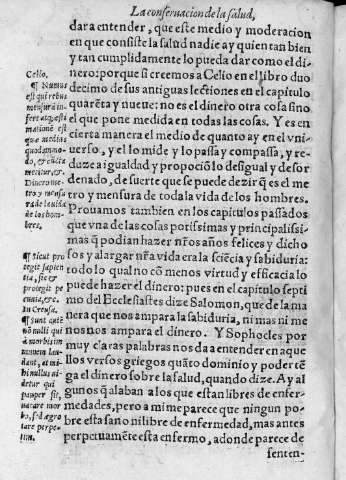 La conseruacion de la salud,
dar a entender, que este medio y moderacion
en que consiste la salud nadie ay quien tan bien
y tan cumplidamente lo pueda dar como el di-
nero: porque si creemos a Celio en el libro duo
decimo de sus antiguas lectiones en el capitulo
quarēta y nueue: no es el dinero otra cosa sino
el que pone medida en todas las cosas. Y es en
cierta manera el medio de quanto ay en el vni-
uerso, y el lo mide y lo passa y compassa, y re-
duze a igualdad y propociō lo desigual y desor
denado, de suerte que se puede dezir q̄ es el me
tro y mensura de toda la vida de los hombres.
Prouamos tambien en los capitulos passados
que vna de las cosas porissimas y principalissi-
mas q̄ podian hazer nr̄os años felices y dicho
sos y alargar nr̄a vida era la sciēcia y sabiduria:
todo lo qual no cō menos virtud y efficacia lo
puede hazer el dinero: pues en el capitulo septi
mo del Ecclesiastes dize Salomon, que de la ma
nera que nos ampara la sabiduria, ni mas ni me
nos nos ampara el dinero. Y Sophocles por
muy claras palabras nos da a entender en aque
llos versos griegos quāto dominio y poder tē
ga el dinero sobre la salud, quando dize. Ay al
gunos q̄ alaban a los que estan libres de enfer-
medades, pero a mi me parece que ningun po-
bre esta sano ni libre de enfermedad, mas antes
perpetuamēte esta enfermo, a donde parece de
senten-
Celio.
¶ Numus
est qui rebus
mēsurā in-
fert atq; esti
mationē est
quæ medius
quodammo-
do, & cūcta
metitur, &c.
Dinero me-
tro y mēsu
ra de la vida
de los hom-
bres.
¶ Sicut pro
tegit sapien
tia, sic &
protegit pe
cunia, &c.
In Creusa.
¶ Sunt autē
nōnulli qui
a morbis im
munem lau-
dant, at mi-
hi nullus vi-
detur qui
pauper sit,
vacare mor
bo, sed ægro
tare perpe-
tuo.